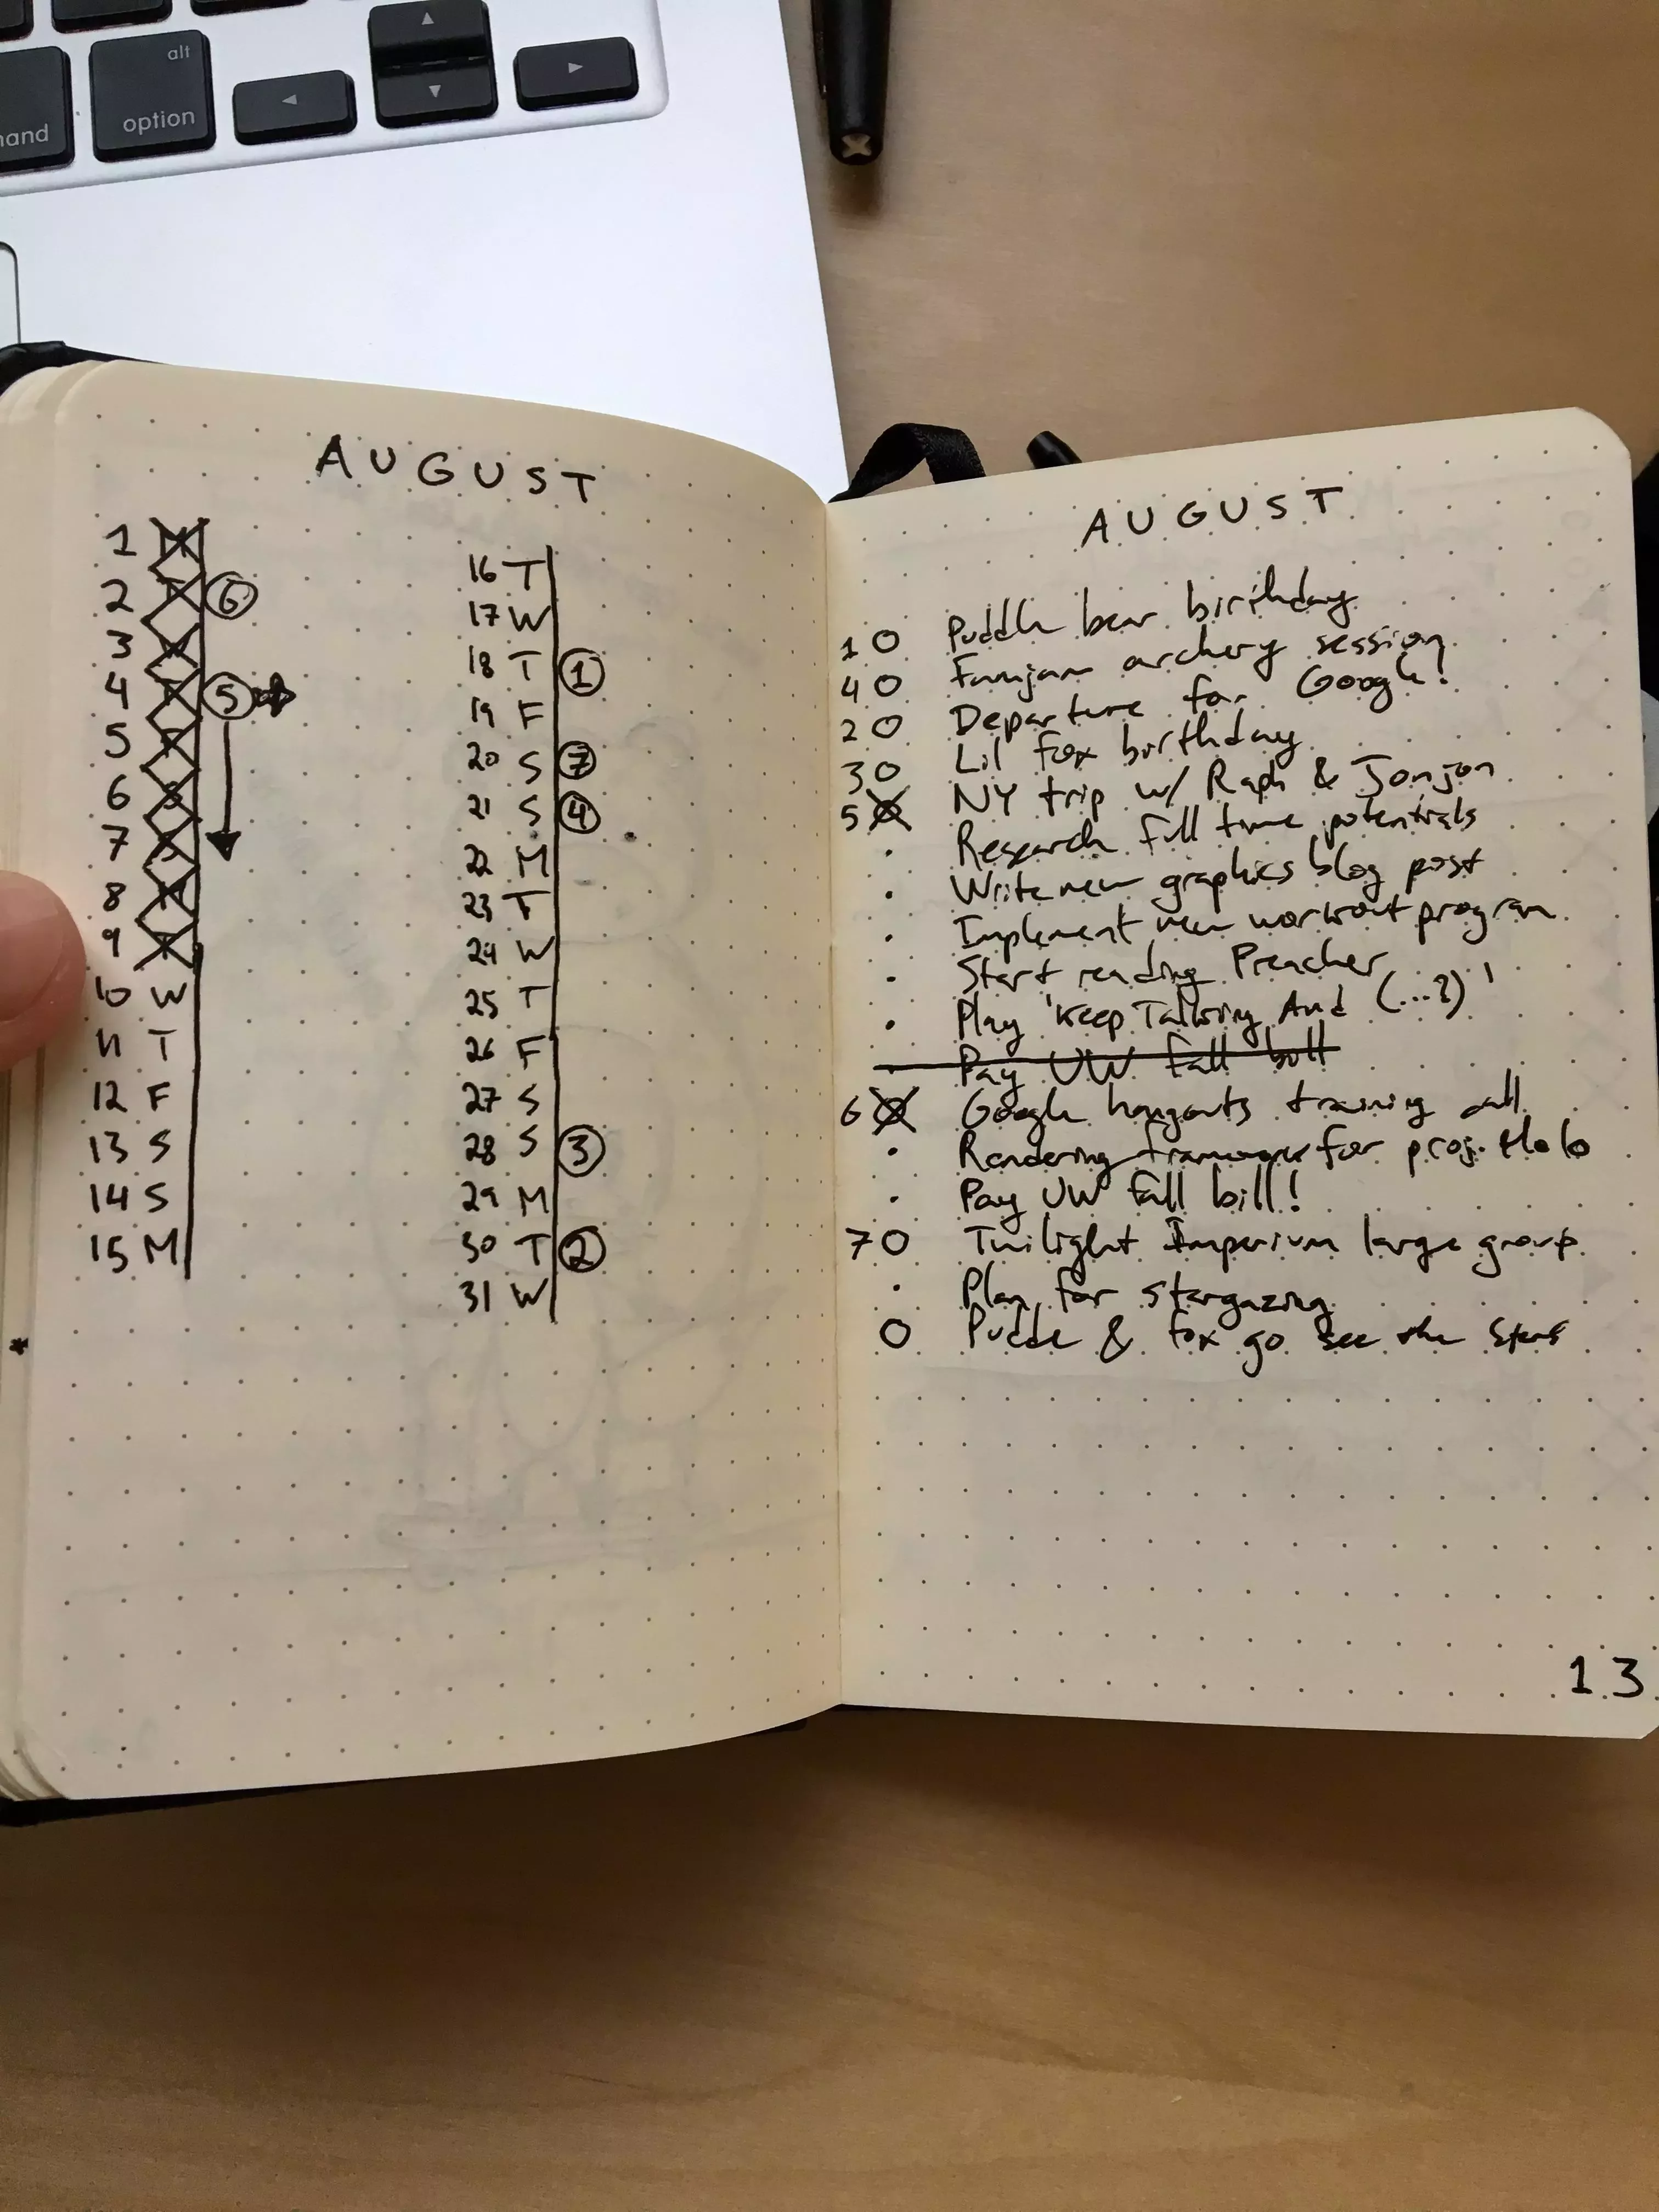 alt
option
AUGUST
1 M
2 T 6
3 W
4 T 5
5 F
6 S
7 S
8 M
9 T
10 W
11 T
12 F
13 S
14 S
15 M
16 T
17 W
18 T 1
19 F
20 S 7
21 S 4
22 M
23 T
24 W
25 T
26 F
27 S
28 S 3
29 M
30 T 2
31 W
AUGUST
1 O Puddle bear birthday
4 O Famjam archery session
2 O Departure for Google!
3 O Lil fox birthday
5 O NY trip w/ Raph & Jonjon
· Research full time potentials
· Write new graphics blog post
· Implement new workout program
· Start reading Preacher
· Play 'Keep Talking And (...?)'
· Pay UW fall bill
6 O Google hangouts training call
· Rendering framework for proj. Holo
· Pay UW fall bill!
7 O Twilight Imperium large group
· Plan for stargazing
O Puddle & fox go see the stars
13